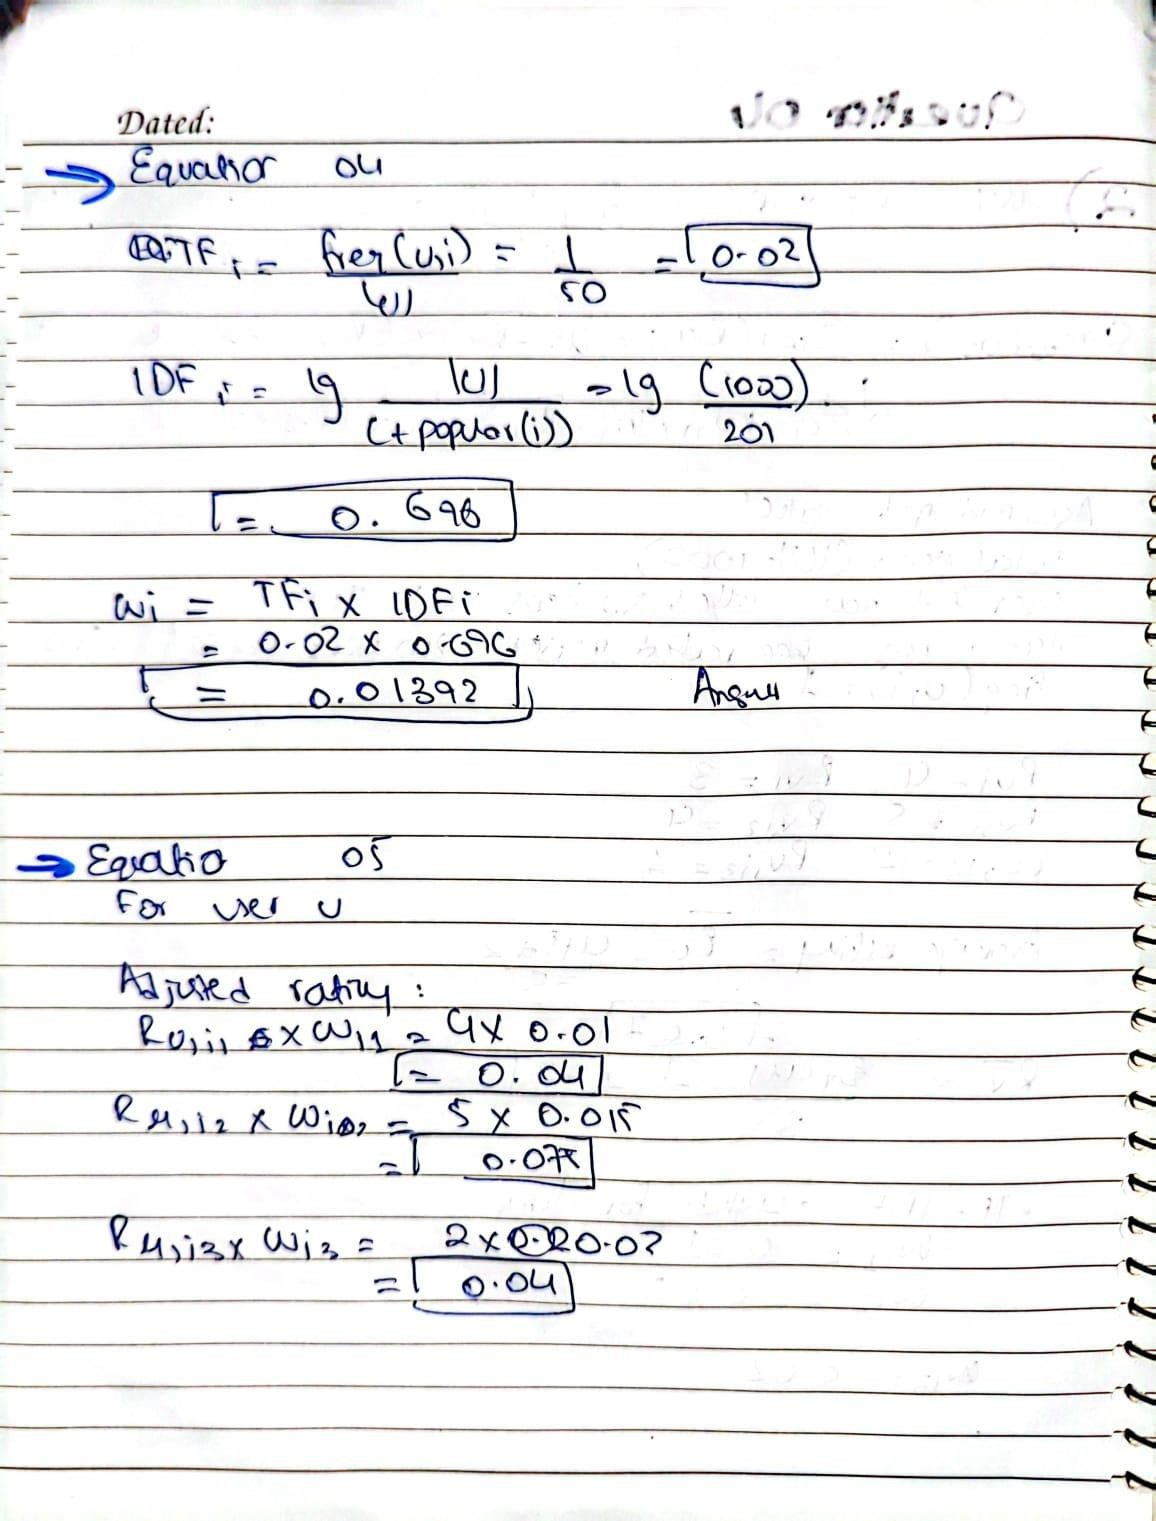 Dated:
Equation 04
TF i = freq(u,i) / |u| = 1 / 50 = 0.02
IDF i = lg |U| / (1+popular(i)) = lg (1000) / 201
= 0.696
wi = TFi x IDFi
= 0.02 x 0.696
= 0.01392
Equatio 05
For user u
Adjusted rating:
Ru,i1 x Wi1 = 4x 0.01
= 0.04
Ru,i2 x Wi2 = 5 x 0.015
= 0.075
Ru,i3 x Wi3 = 2 x 0.02
= 0.04